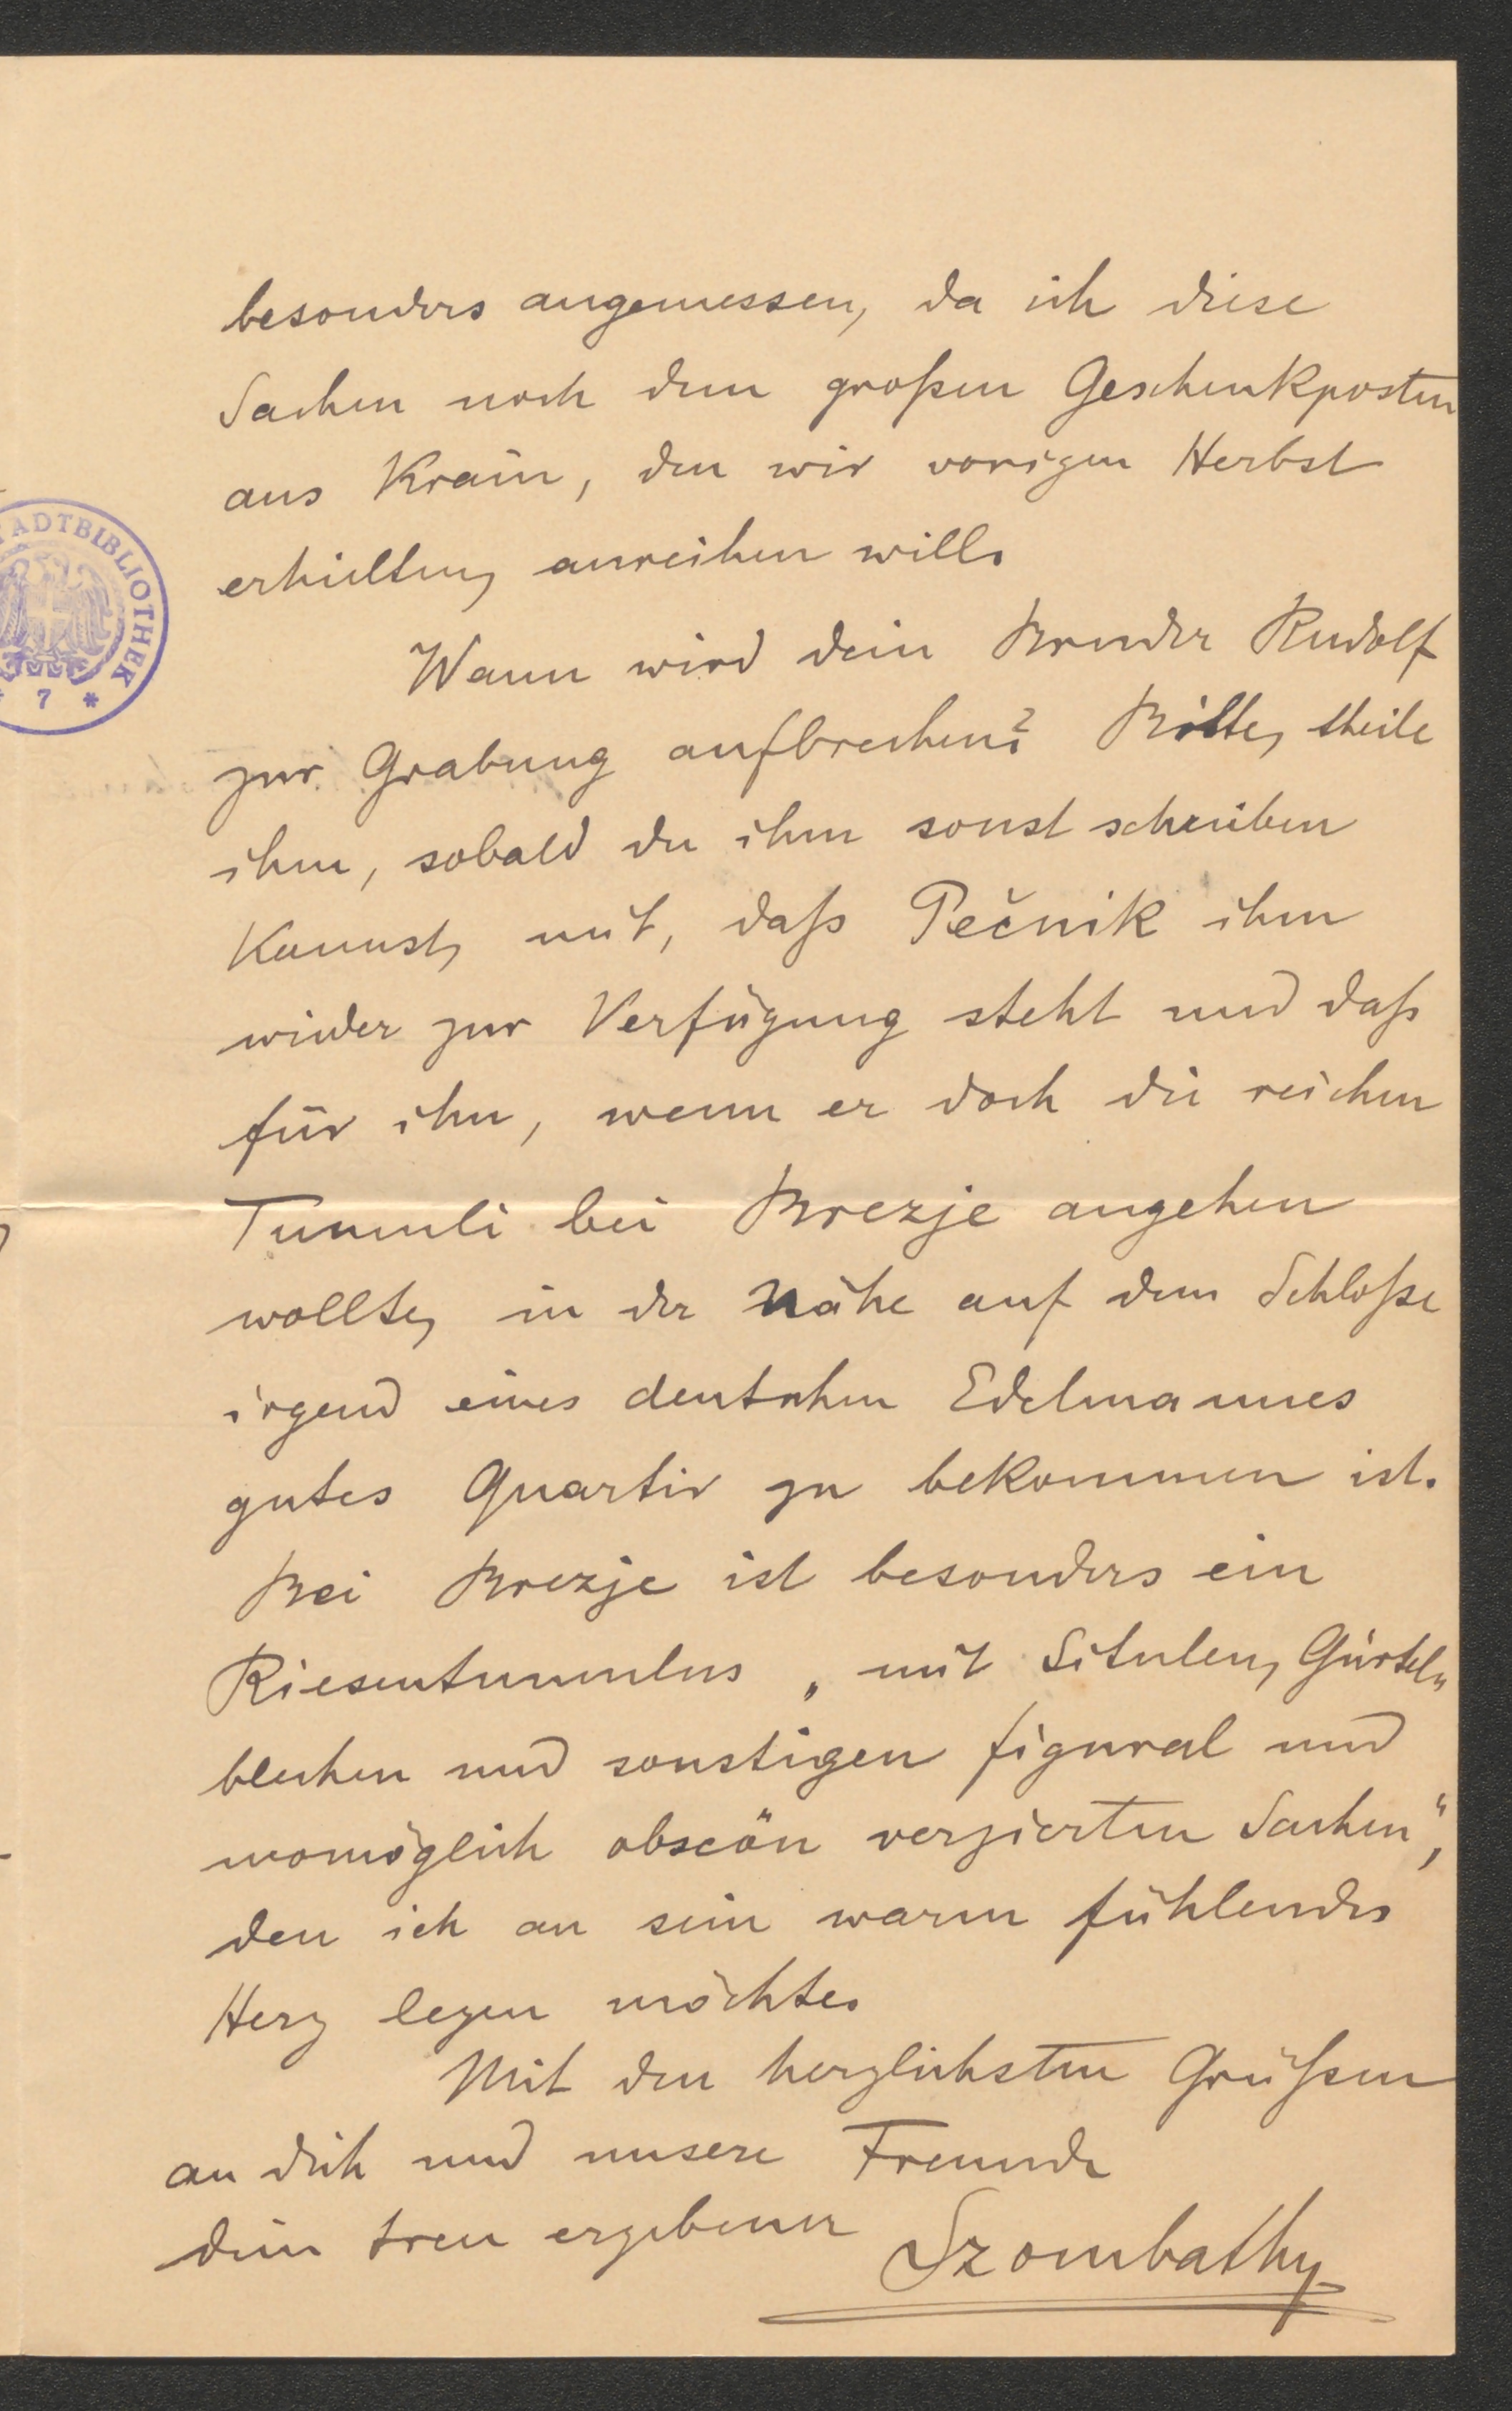 besonders angemessen, da ich diese
Sachen noch dem großen Geschenkposten
aus Krain, den wir vorigen Herbst
erhielten, anreihen will.
Wann wird dein Bruder Rudolf
zur Grabung aufbrechen? Bitte, theile
ihm, sobald du ihm sonst schreiben
kannst, mit, daß Pečnik ihm
wieder zur Verfügung steht und daß
für ihn, wenn er doch die reichen
Tumuli bei Brezje angehen
wollte, in der Nähe auf dem Schloße
irgend eines deutschen Edelmannes
gutes Quartir zu bekommen ist.
Bei Brezje ist besonders ein
Riesentumulus „mit Situlen, Gürtel„
blechen und sonstigen figural und
womöglich obscön verzierten Sachen",
den ich an sein warm fühlendes
Herz legen möchte.
Mit den herzlichsten Grüßen
an dich und unsere Freunde
dein treu ergebener Szombathy
STADTBIBLIOTHEK
* 7 *